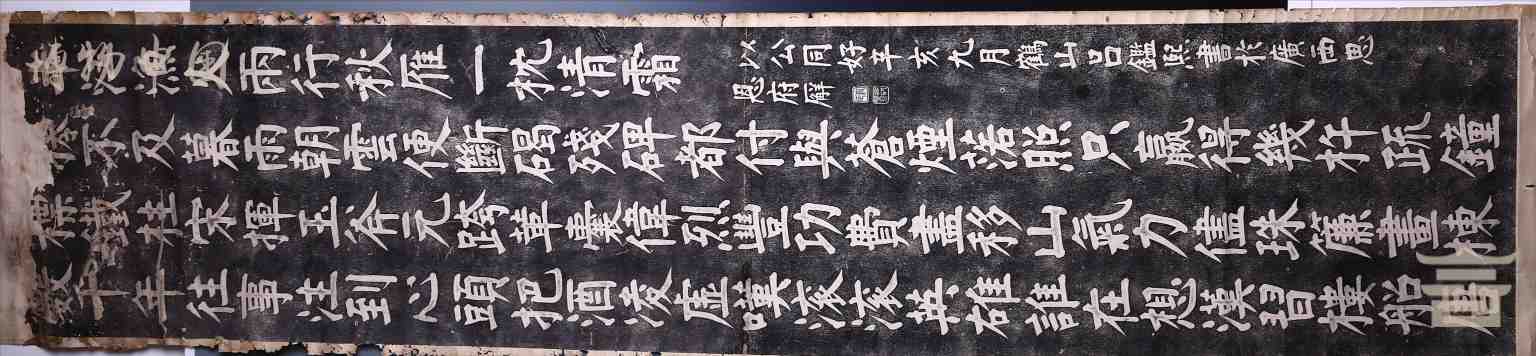 數千年往事注到心頭把酒凌虛嘆滾滾英雄誰在想漢習樓船唐
標鐵柱宋揮玉斧元跨革囊偉烈豐功費盡移山氣力儘珠簾畫棟
捲不及暮雨朝雲便斷碣殘碑都付與蒼煙落照只贏得幾杵疏鐘
漁火兩行秋雁一枕清霜
以公同好辛亥九月鶴山呂鑑熙書於廣西思
恩府廨